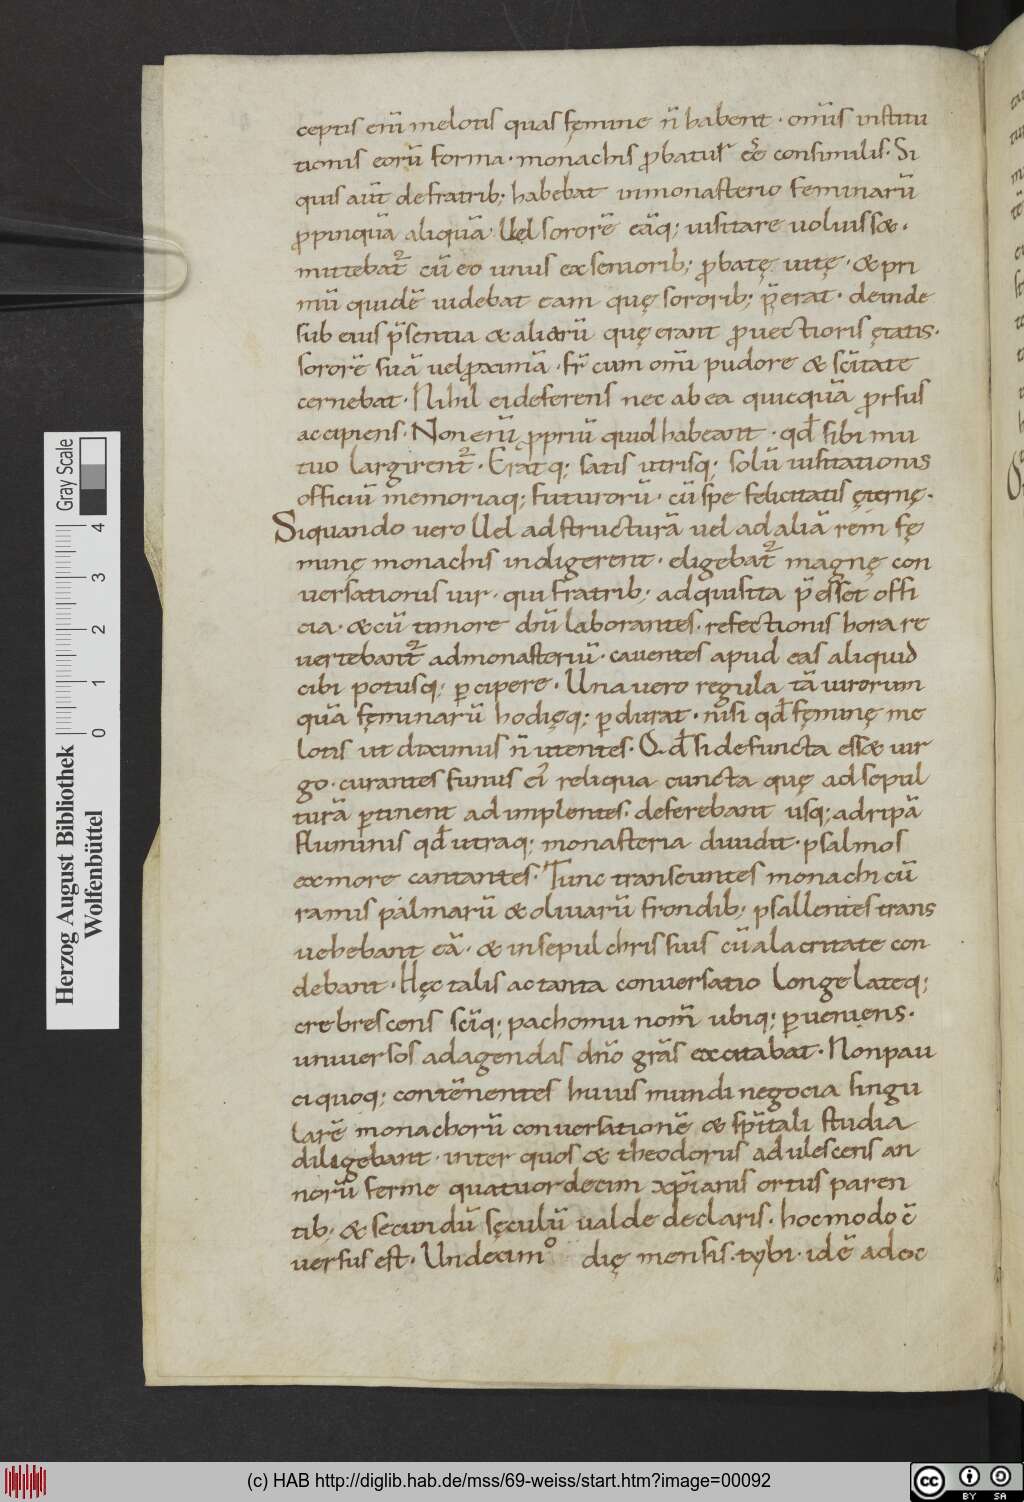 ceptis enī melotis quas fęmine n̄ habent · om̄is institu
tionis eorū forma · monachis ꝓbatur eē consimilis · Si
quis aūt de fratrib; habebat in monasterio feminarū
ꝓpinquā aliquā Uel sororē eāq; uisitare uoluissæ ·
mittebat᷑ cū eo unus ex seniorib; ꝓbatę uitę · & pri
mū quidē uidebat eam quę sororib; p̄erat · deinde
sub eius p̄sentia & aliarū quę erant ꝓuectioris ętatis ·
sororē suā uel ꝓximā · fr̄ cum om̄i pudore & sc̄itate
cernebat · Nihil ei deferens nec ab ea quicquā prorsus
accipiens · Non enī ꝓpriū quid habeant · qd̄ sibi mu
tuo largirent᷑ · Erat q; satis utrisq; solū uisitationis
officiū memoriaq; futurorū · cū spe felicitatis ęternę ·
Si quando uero Uel ad structurā uel ad aliā rem fę
minę monachis indigerent · eligebat᷑ magnę con
uersationis uir · qui fratrib; adquisita p̄esset offi
cia · & cū timore dn̄i laborantes · refectionis hora re
uertebant᷑ ad monasteriū · cauentes apud eas aliquid
cibi potusq; ꝑcipere · Una uero regula tā uirorum
quā fęminarū hodięq; ꝑdurat · nisi qd̄ fęminę me
lotis ut diximus n̄ utentes · Qd̄ si defuncta essæ uir
go · curantes funus ei reliqua cuncta quę ad sepul
turā ꝑtinent adimplentes · deferebant usq; ad ripā
fluminis qd̄ utraq; monasteria diuidit · psalmos
ex more cantantes · Tunc transeuntes monachi cū
ramis palmarū & oliuarū frondib; psallentes trans
uehebant eā · & in sepulchris suis cū alacritate con
debant · Hęc talis ac tanta conuersatio longe lateq;
crebrescens sc̄iq; pachomii nom̄ ubiq; ꝑueniens ·
uniuersos ad agendas dn̄o grās excitabat · Non pau
ci quoq; contēnentes huius mundi negocia singu
larē monachorū conuersationē & sp̄itali studia
diligebant · inter quos & theodorus adulescens an
norū ferme quatuordecim xp̄ianis ortus paren
tib; & secundū sęculū ualde declaris · hoc modo c̄
uersus est · Undecimo die mensis · tybi · idē adoc
Herzog August Bibliothek
Wolfenbüttel
0 1 2 3 4
Gray Scale
(c) HAB http://diglib.hab.de/mss/69-weiss/start.htm?image=00092
cc BY SA